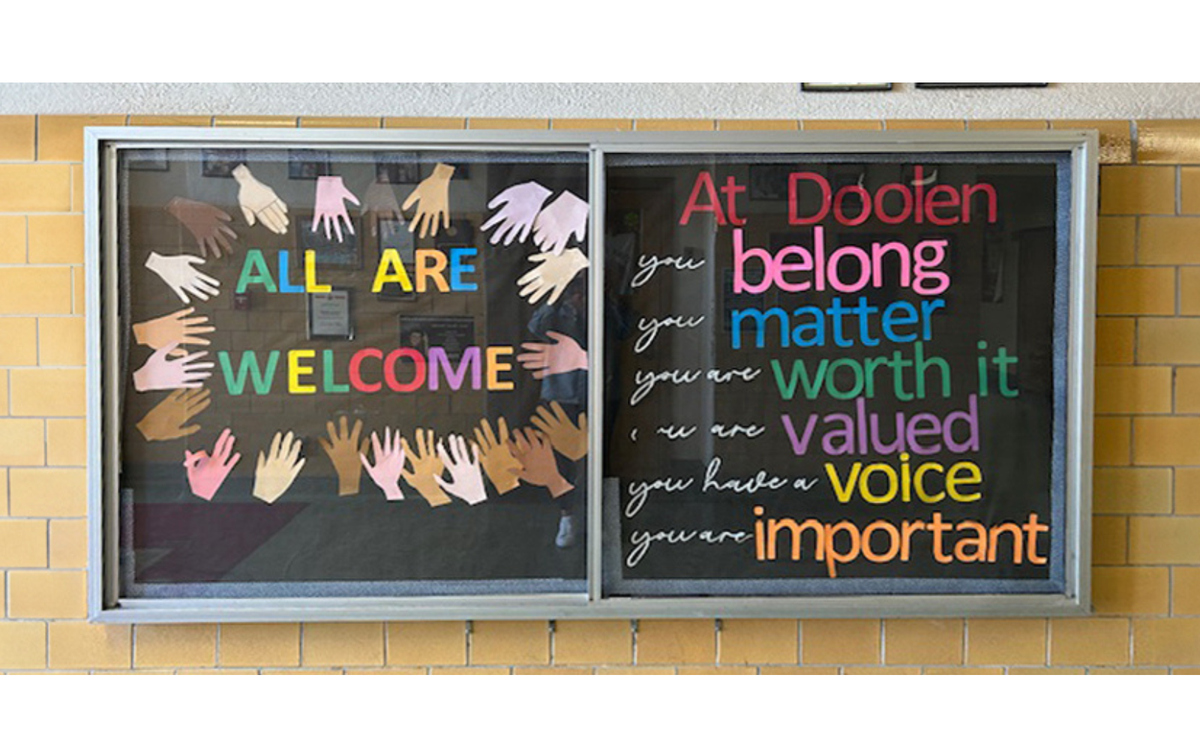 ALL ARE
WELCOME
At Doolen
you belong
you matter
you are worth it
are valued
you have a voice
you are important